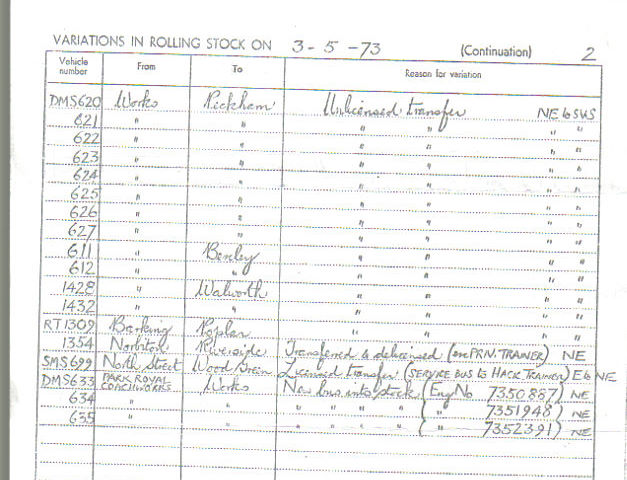 VARIATIONS IN ROLLING STOCK ON 3-5-73 (Continuation) 2
Vehicle number From To Reason for variation
DMS620 Works Peckham Unlicensed transfer NE to SUS
621 " " " " " "
622 " " " " " "
623 " " " " " "
624 " " " " " "
625 " " " " " "
626 " " " " " "
627 " " " " " "
611 " Bexley " " " "
612 " " " " " "
1428 " Walworth " " " "
1432 " " " " " "
RT1309 Barking Poplar " " " "
1354 Norbiton Riverside Transferred & delicensed (ex PRV. TRAINER) NE
SMS699 North Street Wood Green Licensed transfer (SERVICE BUS to HACK TRAINER) E to NE
DMS633 PARK ROYAL COACHWORKS Works New bus into stock (Eng No 7350887) NE
634 " " " " " " ( " 7351948) NE
635 " " " " " " ( " 7352391) NE